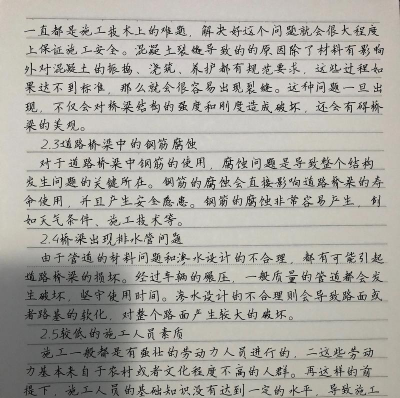 一直都是施工技术上的难题，解决好这个问题就会很大程度
上保证施工安全。混凝土裂缝导致的的原因除了材料有影响
外对混凝土的振捣、浇筑、养护都有规范要求，这些过程如
果达不到标准，那么就会很容易出现裂缝。这种问题一旦出
现，不仅会对桥梁结构的强度和刚度造成破坏，还会有碍桥
梁的美观。
2.3道路桥梁中的钢筋腐蚀
对于道路桥梁中钢筋的使用，腐蚀问题是导致整个结构
发生问题的关键所在。钢筋的腐蚀会直接影响道路桥梁的寿
命使用，并且产生安全隐患。钢筋的腐蚀非常容易产生，例
如天气条件、施工技术等。
2.4桥梁出现排水管问题
由于管道的材料问题和渗水设计的不合理，都有可能引起
道路桥梁的损坏。经过车辆的碾压，一般质量的管道都会发
生破坏，坚守使用时间。渗水设计的不合理则会导致路面或
者路基的软化，对整个路面产生较大的破坏。
2.5较低的施工人员素质
施工一般都是有强壮的劳动力人员进行的，二这些劳动
力基本来自于农村或者文化程度不高的人群。再这样的前
提下，施工人员的基础知识没有达到一定的水平，导致施工